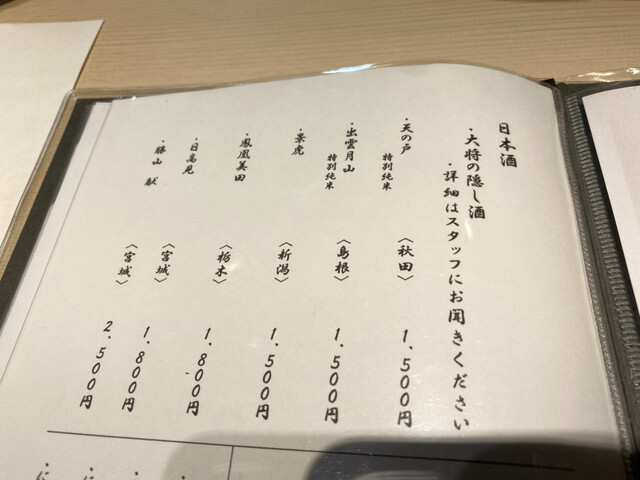 日本酒
・大将の隠し酒
・詳細はスタッフにお聞きください
・天の戸 特別純米 〈秋田〉 1,500円
・出雲月山 特別純米 〈島根〉 1,500円
・景虎 〈新潟〉 1,500円
・鳳凰美田 〈栃木〉 1,800円
・日高見 〈宮城〉 1,800円
・勝山 献 〈宮城〉 2,500円